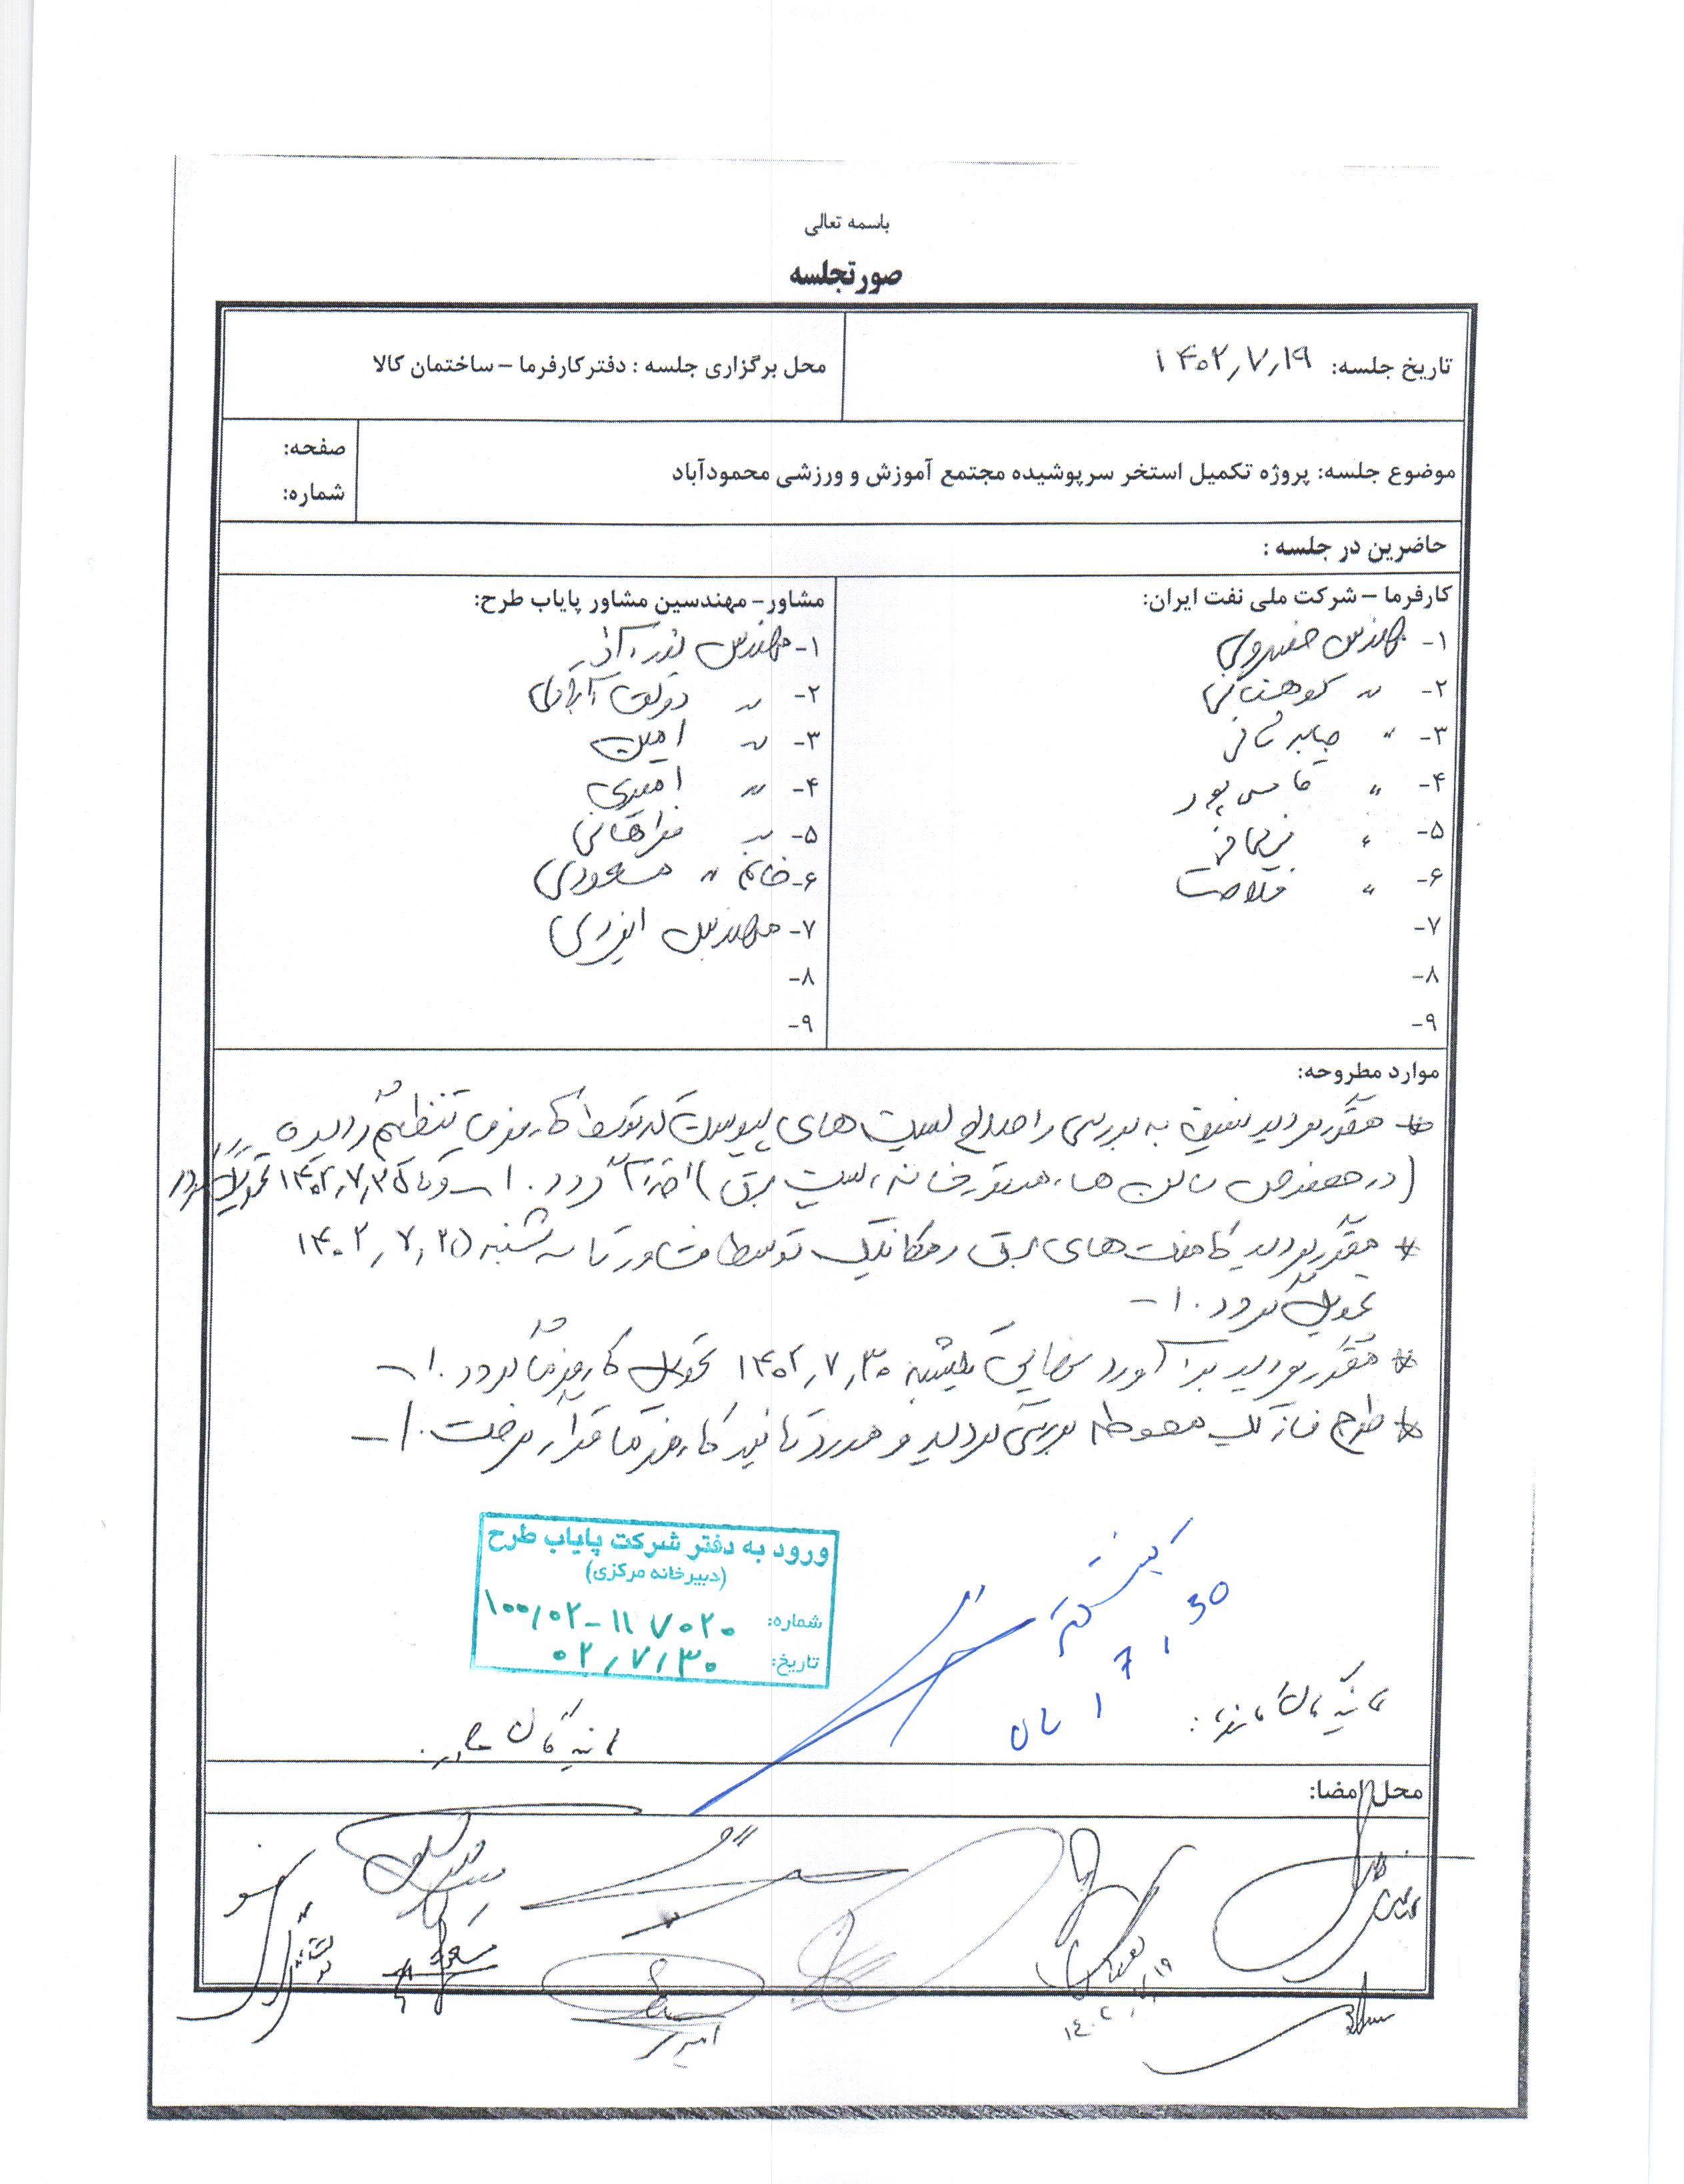 باسمه تعالی
صورتجلسه
تاریخ جلسه: ۱۴۰۲٫۷٫۱۹
محل برگزاری جلسه : دفتر کارفرما – ساختمان کالا
موضوع جلسه: پروژه تکمیل استخر سرپوشیده مجتمع آموزش و ورزشی محمودآباد
صفحه:
شماره:
حاضرین در جلسه :
کارفرما – شرکت ملی نفت ایران:
۱- مهندس خسروی
۲- " کوهستانی
۳- " صابر
۴- "
۵- "
۶- " فلاحت
۷-
۸-
۹-
مشاور – مهندسین مشاور پایاب طرح:
۱- مهندس
۲- " دولت آبادی
۳- " امین
۴- " امیری
۵- " فراهانی
۶- خانم " مسعودی
۷- مهندس ایزدی
۸-
۹-
موارد مطروحه:
* مقرر گردید نسبت به بررسی و اصلاح لیست های پیوست که توسط کارفرما تنظیم گردیده
(در خصوص سالن ها، موتورخانه، لیست برق) اقدام گردد. و تا ۱۴۰۲٫۷٫۲۵ تحویل گردد
* مقرر گردید کامنت های برق و مکانیک توسط مشاور تا سه شنبه ۱۴۰۲٫۷٫۲۵
تحویل گردد.
* مقرر گردید برآورد نهایی یکشنبه ۱۴۰۲٫۷٫۳۰ تحویل کارفرما گردد.
* طرح فاز یک محوطه بررسی گردید و مورد تائید کارفرما قرار گرفت.
ورود به دفتر شرکت پایاب طرح
(دبیرخانه مرکزی)
شماره: ۱۰۰/۰۲-۱۱۷۰۲۰
تاریخ: ۰۲/۷/۳۰
محل امضا:
مسعودی
امیری
۱۴۰۲/۷/۱۹